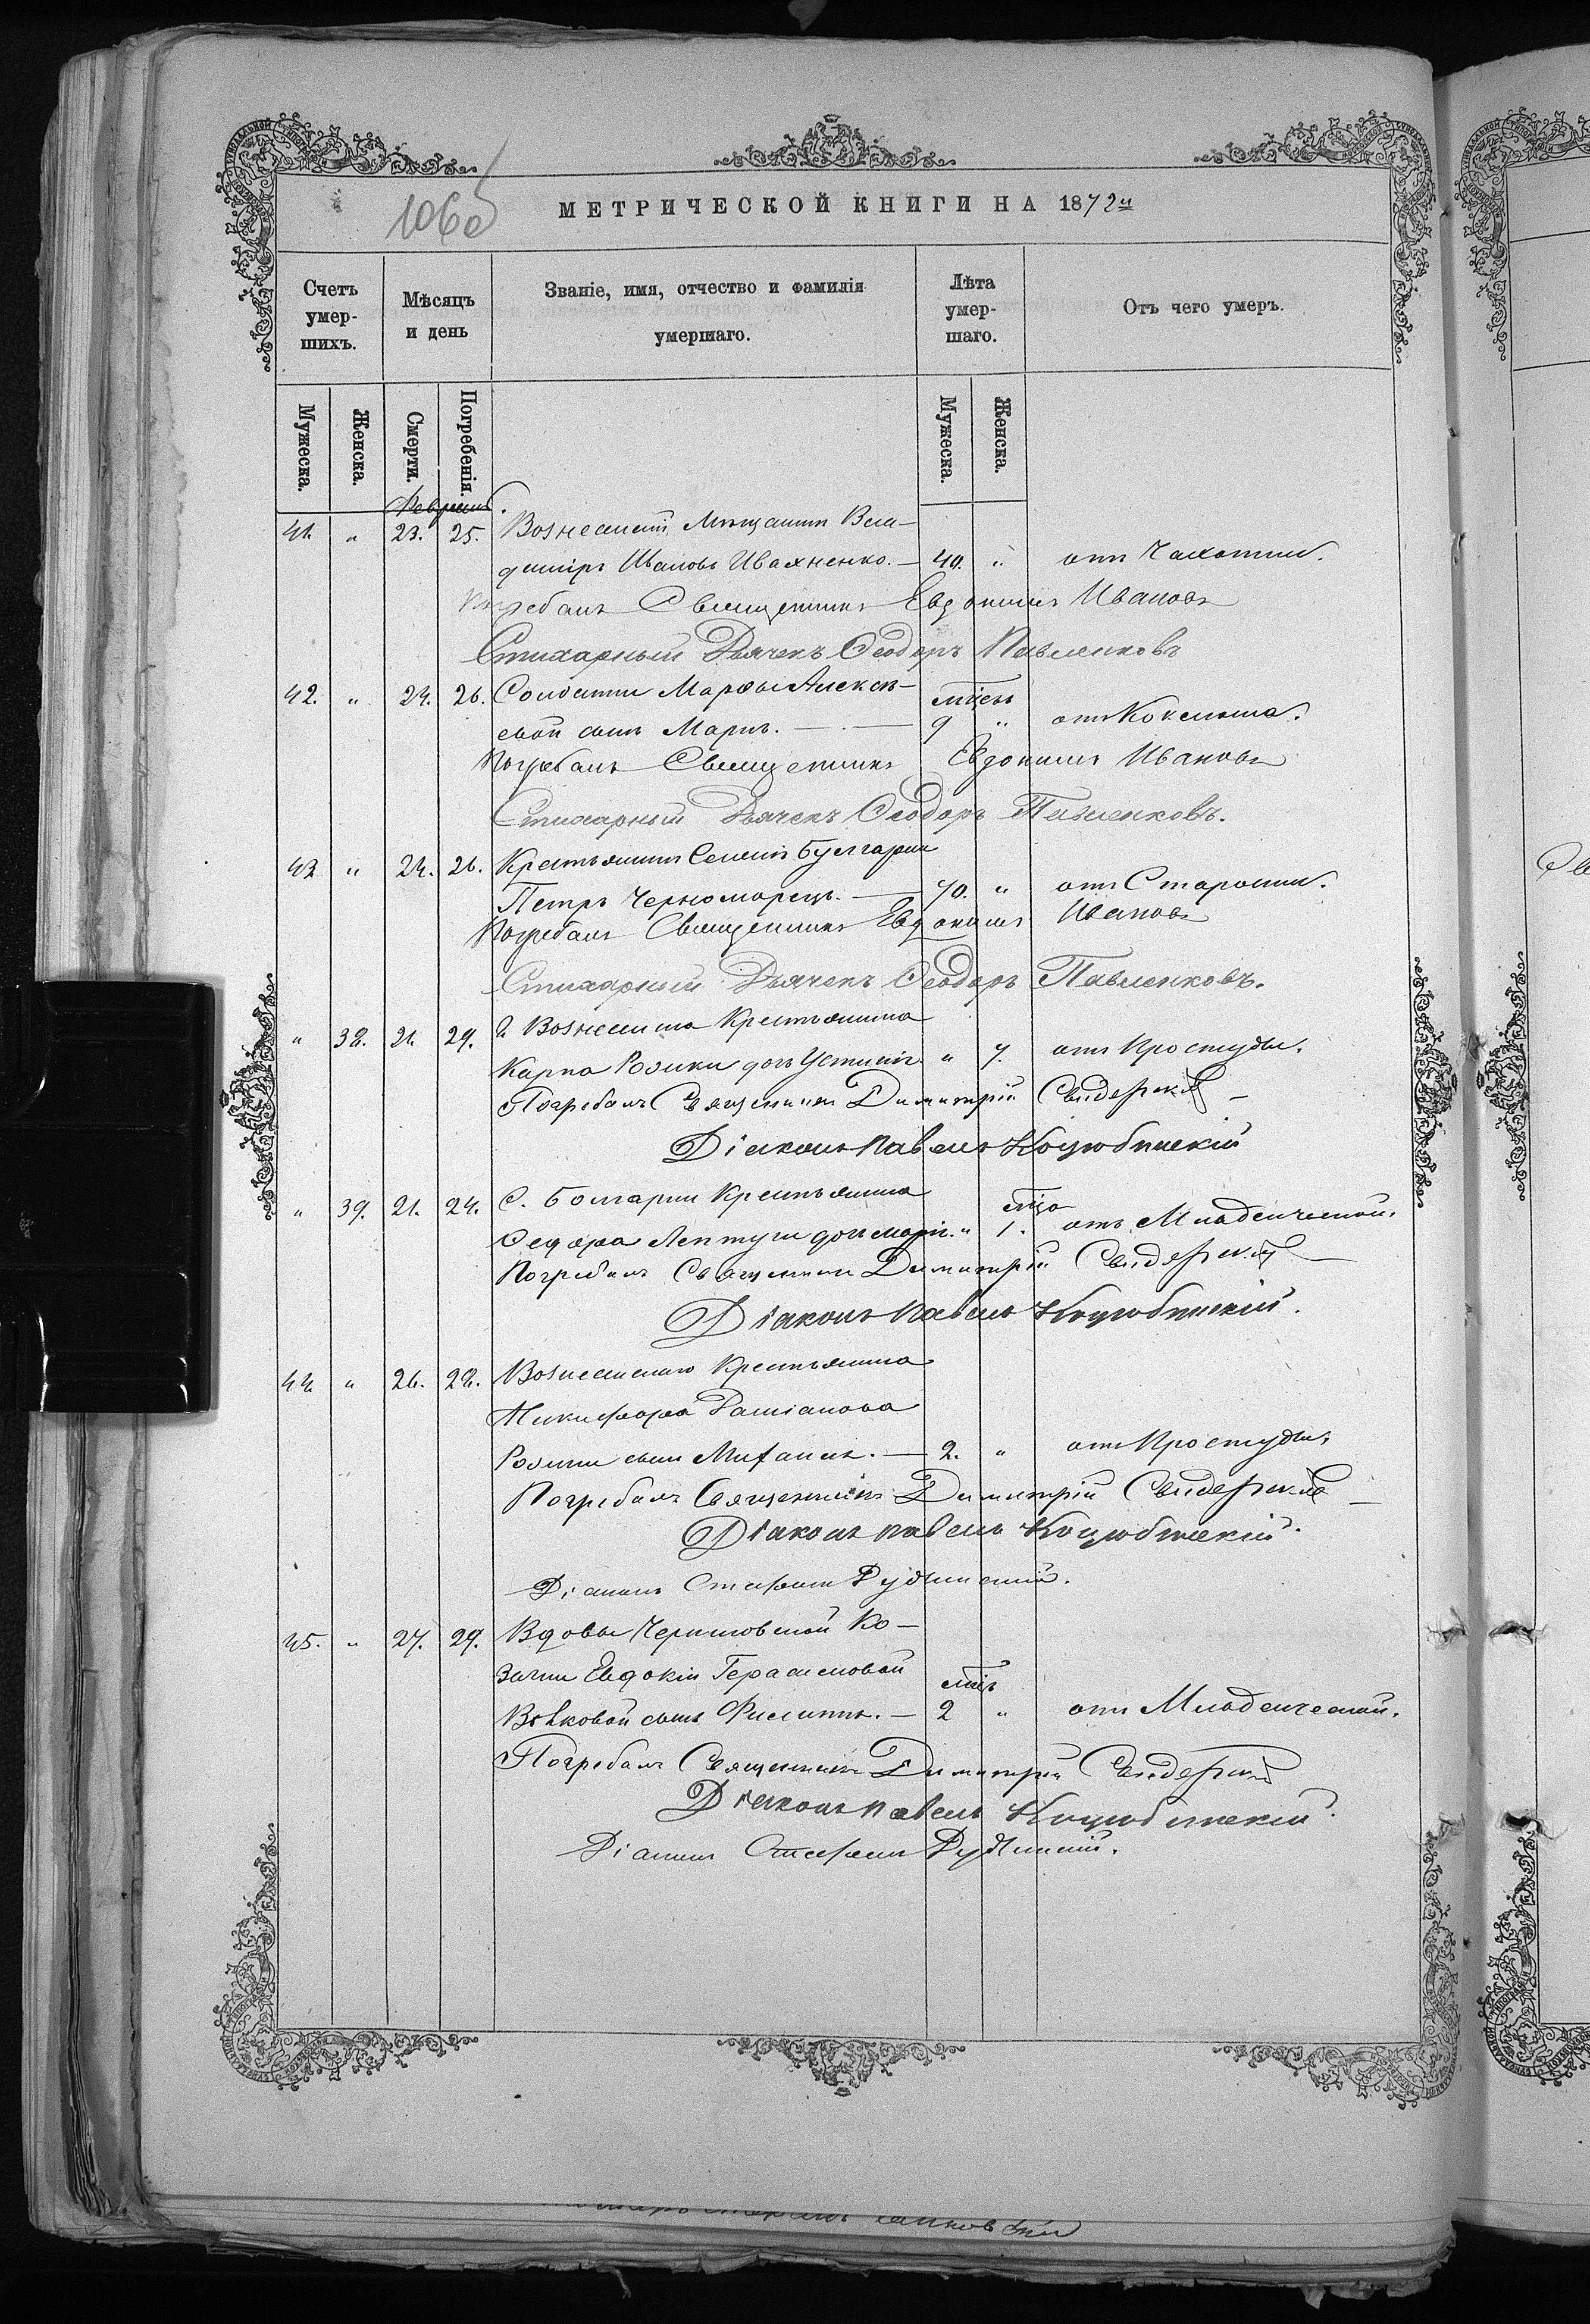 106 об
МЕТРИЧЕСКОЙ КНИГИ НА 1872й
Счетъ умер-шихъ.
Мѣсяцъ и день
Званіе, имя, отчество и фамилія умершаго.
Лѣта умер-шаго.
Отъ чего умеръ.
Мужеска.
Женска.
Смерти.
Погребенія.
Мужеска.
Женска.
Февраль.
41. " 23. 25. Вознесенскій Мѣщанинъ Вла-
диміръ Ивановъ Ивахненко. — 40. " отъ Чахотки.
Погребалъ Священникъ Евдокимъ Ивановъ
Стихарный Дьячекъ Ѳеодоръ Павленковъ
42. " 24. 26. Солдатки Марѳы Алексѣ-
евой сынъ Маркъ. — 9 " отъ Коклюша.
Погребалъ Священникъ Евдокимъ Ивановъ
Стихарный Дьячекъ Ѳеодоръ Павленковъ.
43 " 24. 26. Крестьянинъ Селенія Булгарки
Петръ Черноморецъ. — 70. " отъ Старости.
Погребалъ Священникъ Евдокимъ Ивановъ
Стихарный Дьячекъ Ѳеодоръ Павленковъ.
" 38. 21. 29. Г. Вознесенска Крестьянина
Карпа дочь " 7. отъ Простуды.
Погребалъ Священникъ Димитрій Свидерскій
Діаконъ Павелъ Коцюбинскій
" 39. 21. 24. С. Болгарки Крестьянина
дочь Марія. " 1. отъ Младенческой.
Погребалъ Священникъ Димитрій Свидерскій
Діаконъ Павелъ Коцюбинскій.
44 " 26. 28. Вознесенскаго Крестьянина
Никифора Даміанова
сынъ Михаилъ. — 2. " отъ Простуды.
Погребалъ Священникъ Димитрій Свидерскій
Діаконъ Павелъ Коцюбинскій.
Діаконъ Стефанъ Рудкинскій.
45. " 27. 29. Вдовы Черниговской Ко-
зачки Евдокіи Герасимовой
Волковой сынъ Филиппъ. — 2 " отъ Младенческой.
Погребалъ Священникъ Димитрій Свидерскій
Діаконъ Павелъ Коцюбинскій.
Діаконъ Стефанъ